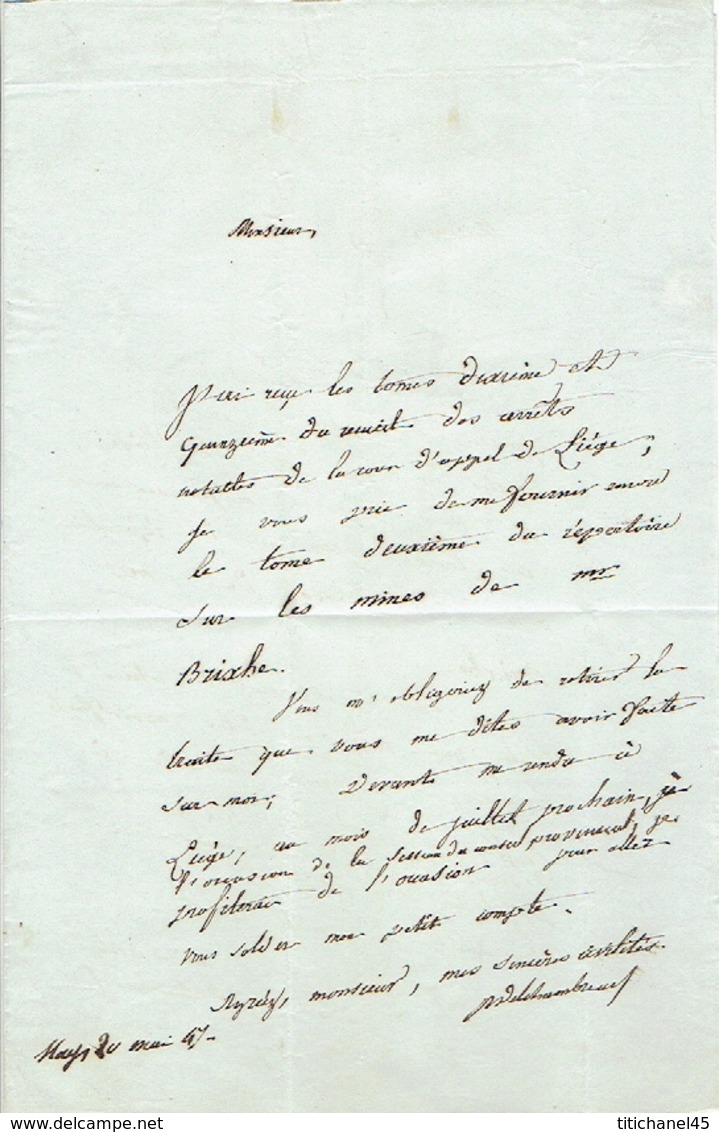 Monsieur,
J'ai reçu les tomes dixième et
quinzième du recueil des arrêts
notables de la cour d'appel de Liége,
je vous prie de me fournir encore
le tome deuxième du répertoire
sur les mines de mr
Brixhe.
Vous m'obligeriez de retirer la
traite que vous me dites avoir faite
sur moi; Devant me rendre à
Liége, au mois de juillet prochain, à
l'occasion de la session du conseil provincial, je
profiterai de l'occasion pour aller
vous solder mon petit compte.
Agréez, monsieur, mes sincères civilités
20 mai 47.
titichanel45